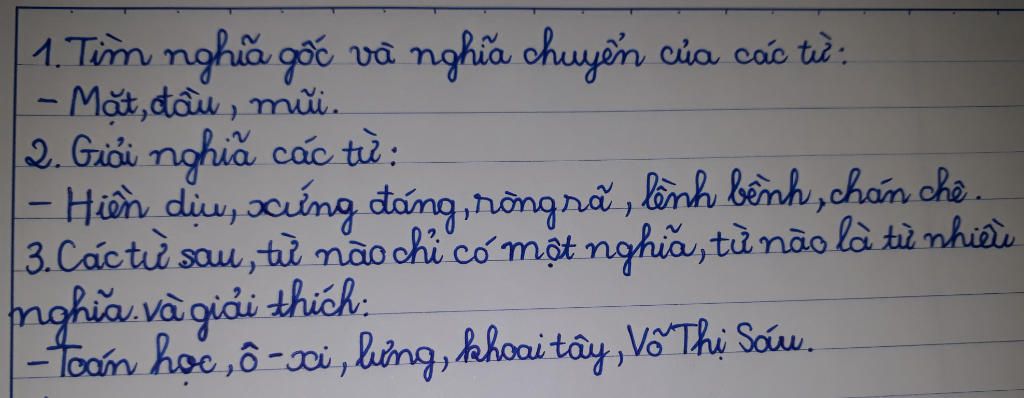 1. Tìm nghĩa gốc và nghĩa chuyển của các từ:
- Mặt, đầu, mũi.
2. Giải nghĩa các từ:
- Hiền dịu, xứng đáng, ròng rã, lềnh bềnh, chán chê.
3. Các từ sau, từ nào chỉ có một nghĩa, từ nào là từ nhiều
nghĩa. và giải thích:
- Toán học, ô-xi, lưng, khoai tây, Võ Thị Sáu.